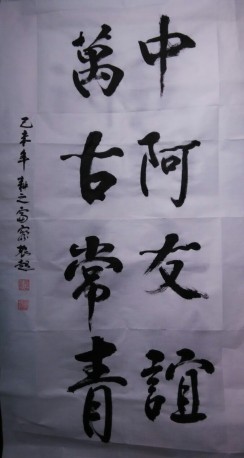 中阿友誼
萬古常青
乙未年